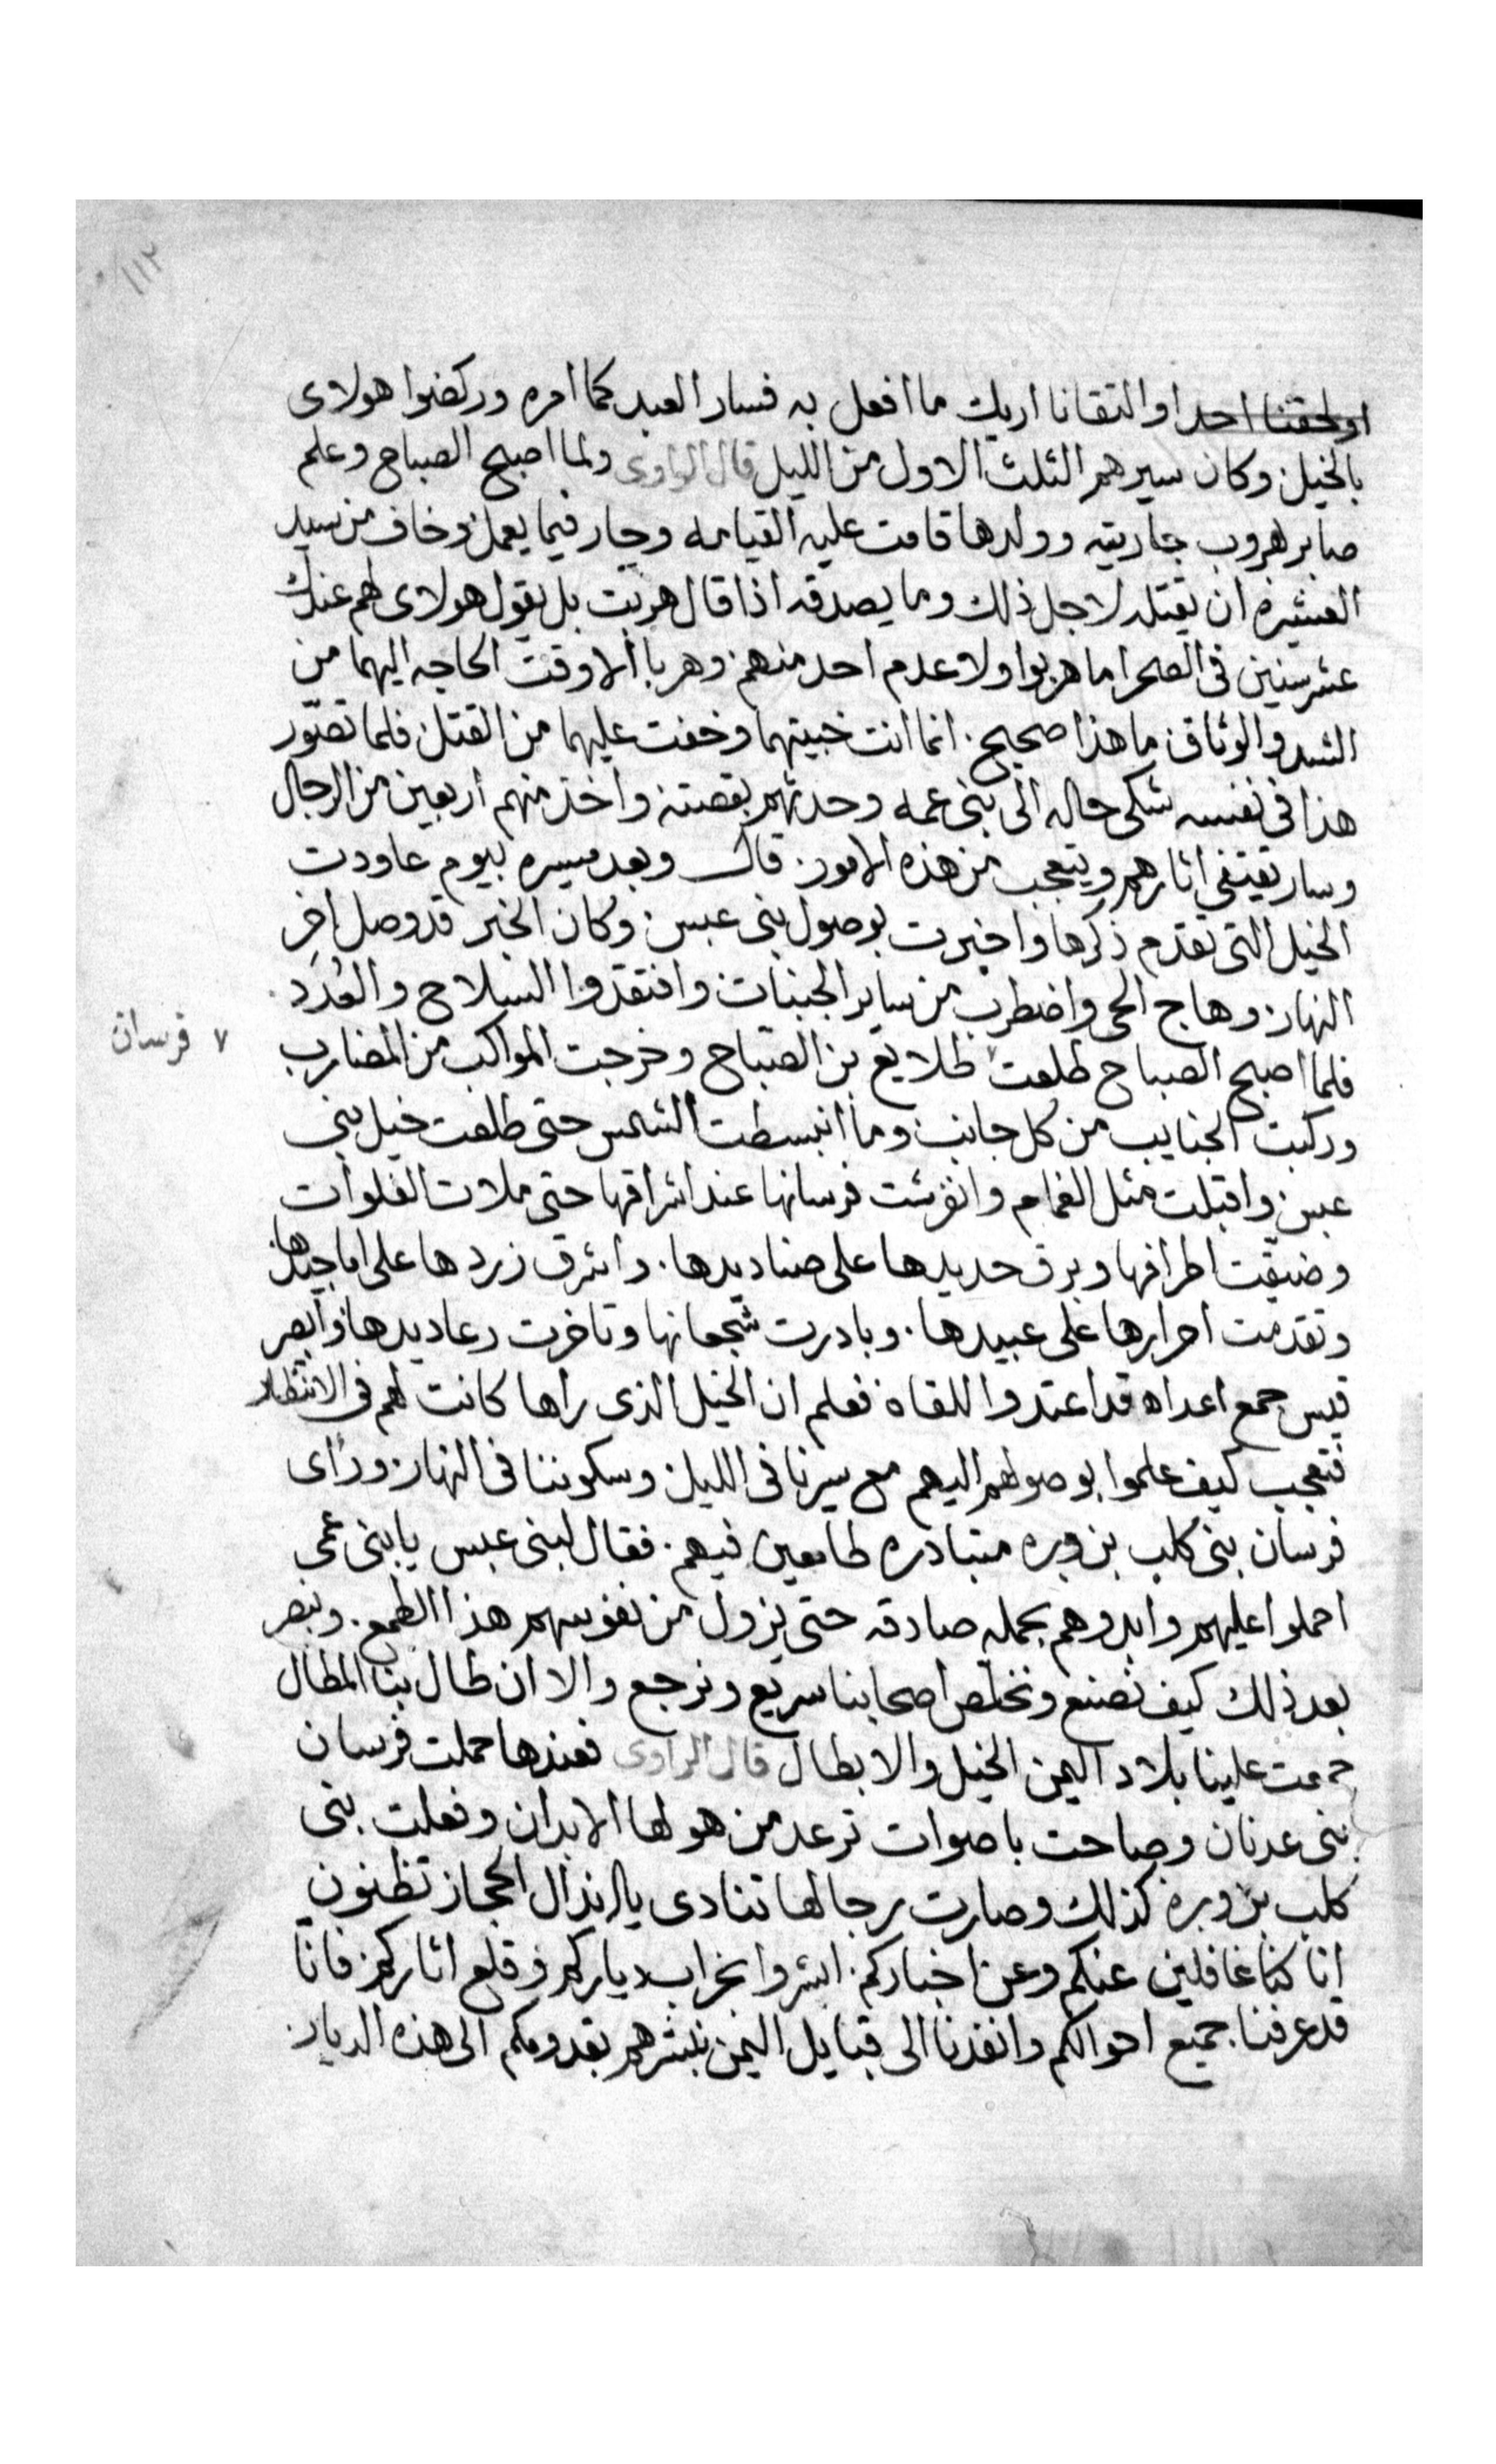 ١١٢
او لحقنا احدا والتقانا اريك ما افعل به فسار العبد كما امره وركضوا هولاى
بالخيل وكان سيرهم الثلث الاول من الليل قال الراوى ولما اصبح الصباح وعلم
صابر هروب جاريته وولدها قامت عليه القيامه وحار فيما يعمل وخاف من سيد
العشيره ان يقتله لاجل ذلك وما يصدقه اذا قال هربت بل يقول هولاى لهم عندك
عشر سنين فى الصحرا ما هربوا ولا عدم احد منهم وهربا الا وقت الحاجه اليهما من
الشد والوثاق ما هذا صحيح انما انت خبيتهما وخفت عليهما من القتل فلما تصوّر
هذا فى نفسه شكى حاله الى بنى عمه وحدثهم بقصته واخذ منهم اربعين من الرجال
وسار يقتفى اثارهم ويتعجب من هذه الامور قال وبعد مسيره بيوم عاودت
الخيل التى تقدم ذكرها واخبرت بوصول بنى عبس وكان الخبر قد وصل اخر
النهار وهاج الحى واضطرب من ساير الجنبات وافتقدوا السلاح والعُدَد
فلما اصبح الصباح طلعت طلايع بن الصباح وخرجت المواكب من المضارب
٧ فرسان
وركبت الجنايب من كل جانب وما انبسطت الشمس حتى طلعت خيل بنى
عبس واقبلت مثل الغمام وانفرشت فرسانها عند اشراقها حتى ملات الفلوات
وضيقت اطرافها وبرق حديدها على صناديدها واشرق زردها على اماجيدها
وتقدمت احرارها على عبيدها وبادرت شجعانها وتاخرت رعاديدها وابصر
قيس جمع اعداه قد اعتدوا للقاه فعلم ان الخيل الذى راها كانت لهم فى الانتظار
فتعجب كيف علموا بوصولهم اليهم مع سيرنا فى الليل وسكوننا فى النهار وراى
فرسان بنى كلب بن وبره متبادره طامعين فيهم فقال لبنى عبس يا بنى عمى
احملوا عليهم وابدوهم بحمله صادقه حتى يزول من نفوسهم هذا الطمع ونبصر
بعد ذلك كيف نصنع ونخلص اصحابنا سريع ونرجع والا ان طال بنا المطال
جمعت علينا بلاد اليمن الخيل والابطال قال الراوى فعندها حملت فرسان
بنى عدنان وصاحت باصوات ترعد من هولها الابدان وفعلت بنى
كلب بن وبره كذلك وصارت رجالها تنادى يا انذال الحجاز تظنون
انا كنا غافلين عنكم وعن اخباركم ابشروا بخراب دياركم وقلع اثاركم فانا
قد عرفنا جميع احوالكم وانفذنا الى قبايل اليمن نبشرهم بقدومكم الى هذه الديار